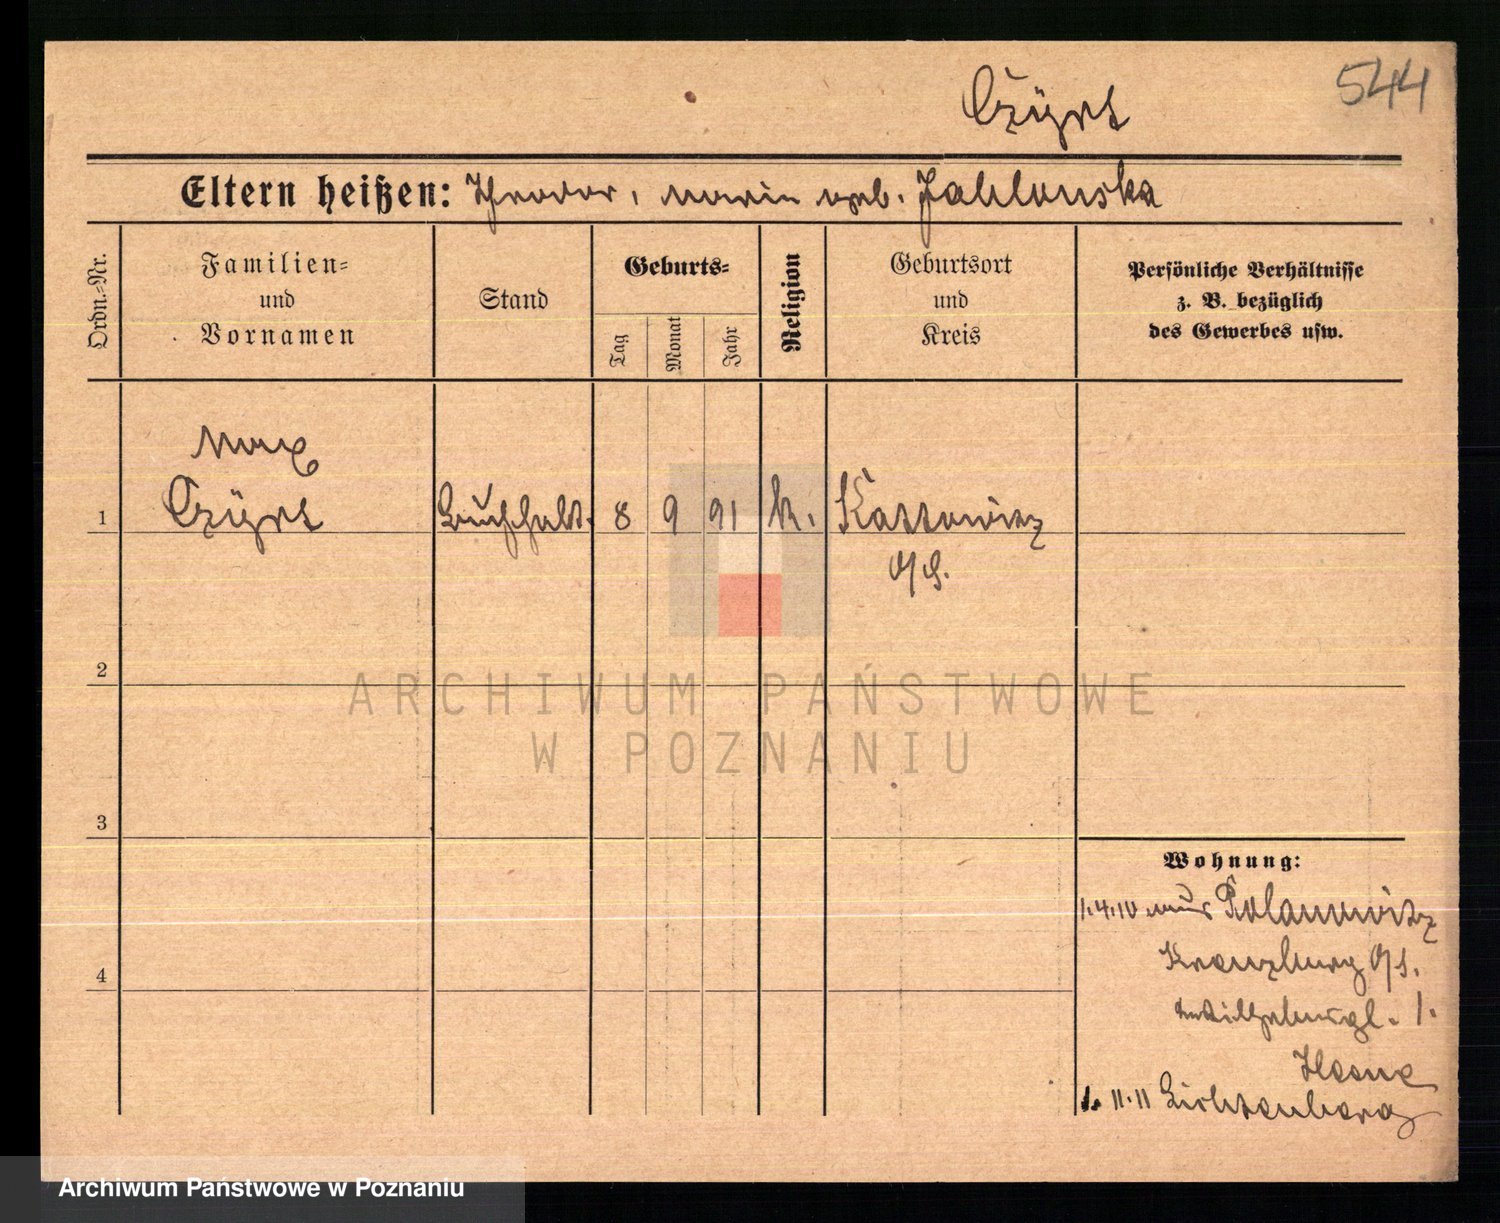 544
Czyrt
Eltern heißen: Theodor, Marie geb. Jablonska
Ordn.=Nr.
Familien=
und
Vornamen
Stand
Geburts=
Tag
Monat
Jahr
Religion
Geburtsort
und
Kreis
Persönliche Verhältnisse
z. B. bezüglich
des Gewerbes usw.
Max
1 Czyrt Buchhalt. 8 9 91 k. Kattowitz
O/S.
2
3
4
ARCHIWUM PAŃSTWOWE
W POZNANIU
Wohnung:
1.4.10 aus Polanowitz
Kreuzburg O/S.
1.
1.11.11 Lichtenberg
Archiwum Państwowe w Poznaniu